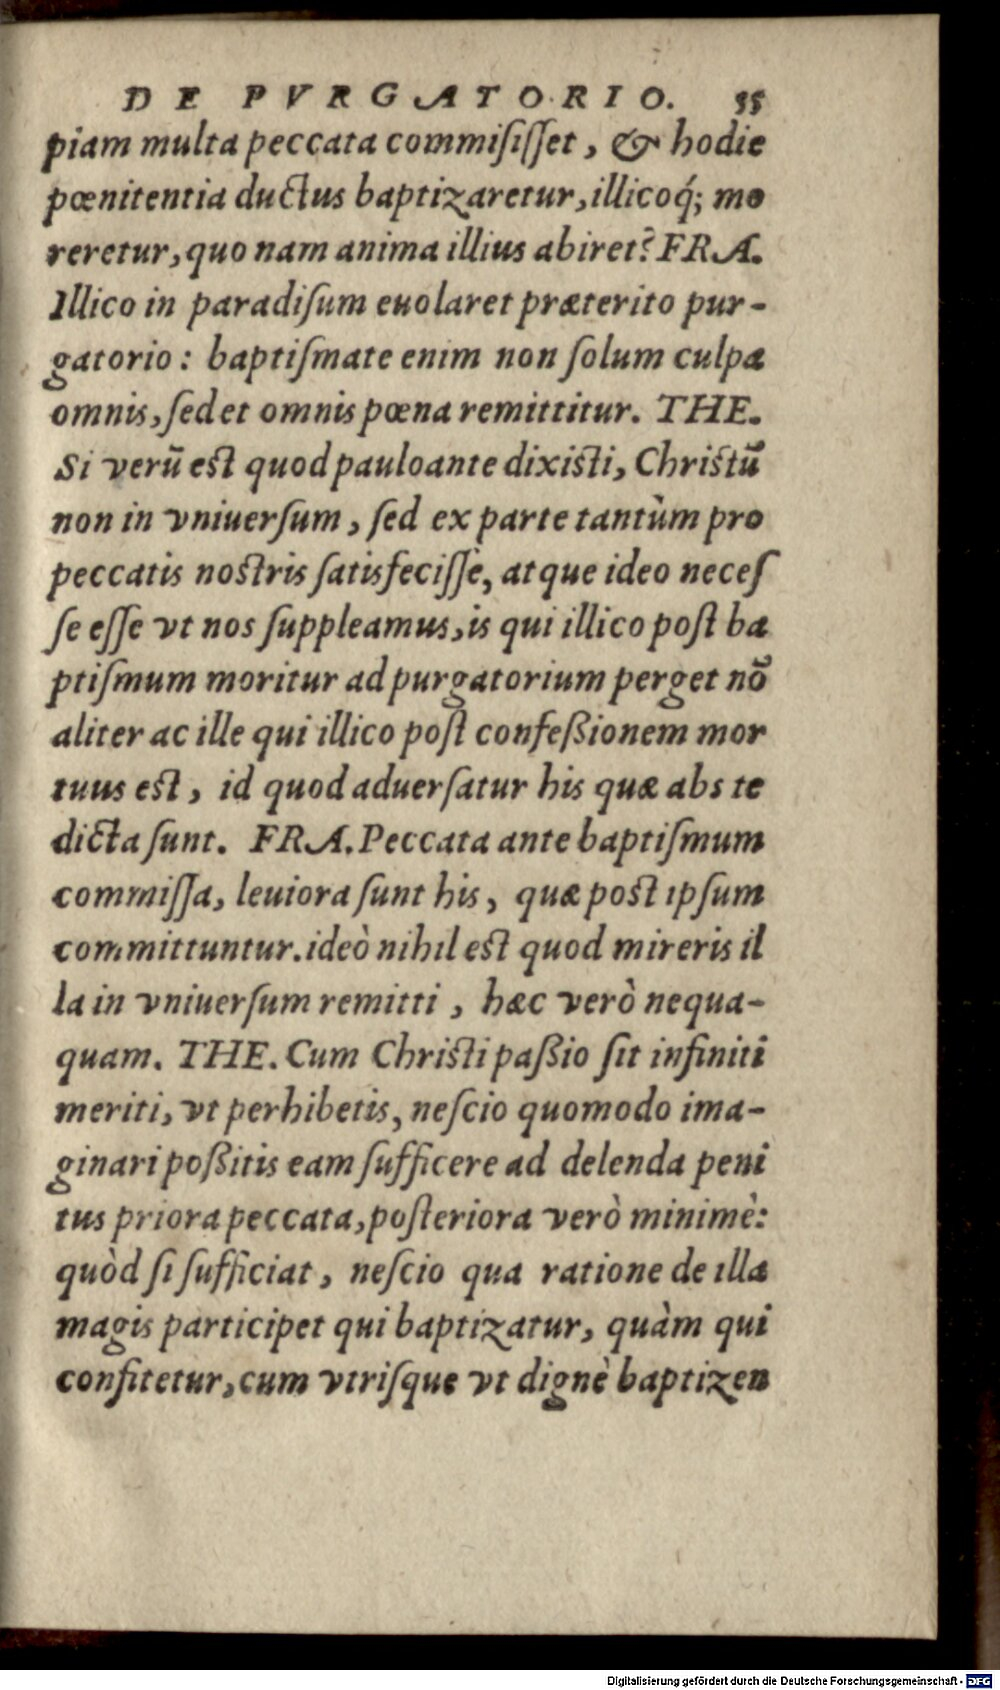 DE PVRGATORIO. 55
piam multa peccata commiſiſſet, & hodie
pœnitentia ductus baptizaretur, illicoq́; mo
reretur, quo nam anima illius abiret? FRA.
Illico in paradiſum euolaret præterito pur-
gatorio: baptiſmate enim non ſolum culpa
omnis, ſed et omnis pœna remittitur. THE.
Si verũ est quod pauloante dixisti, Christũ
non in vniuerſum, ſed ex parte tantùm pro
peccatis nostris ſatisfeciſſè, atque ideo neceſ
ſe eſſe vt nos ſuppleamus, is qui illico poſt ba
ptiſmum moritur ad purgatorium perget nõ
aliter ac ille qui illico poſt confeßionem mor
tuus est, id quod aduerſatur his quæ abs te
dicta ſunt. FRA. Peccata ante baptiſmum
commiſſa, leuiora ſunt his, quæ post ipſum
committuntur. ideò nihil est quod mireris il
la in vniuerſum remitti, hæc verò nequa-
quam. THE. Cum Christi paßio ſit infiniti
meriti, vt perhibetis, neſcio quomodo ima-
ginari poßitis eam ſufficere ad delenda peni
tus priora peccata, poſteriora verò minimè:
quòd ſi ſufficiat, neſcio qua ratione de illa
magis participet qui baptizatur, quàm qui
confitetur, cum vtriſque vt dignè baptizen
Digitalisierung gefördert durch die Deutsche Forschungsgemeinschaft - DFG